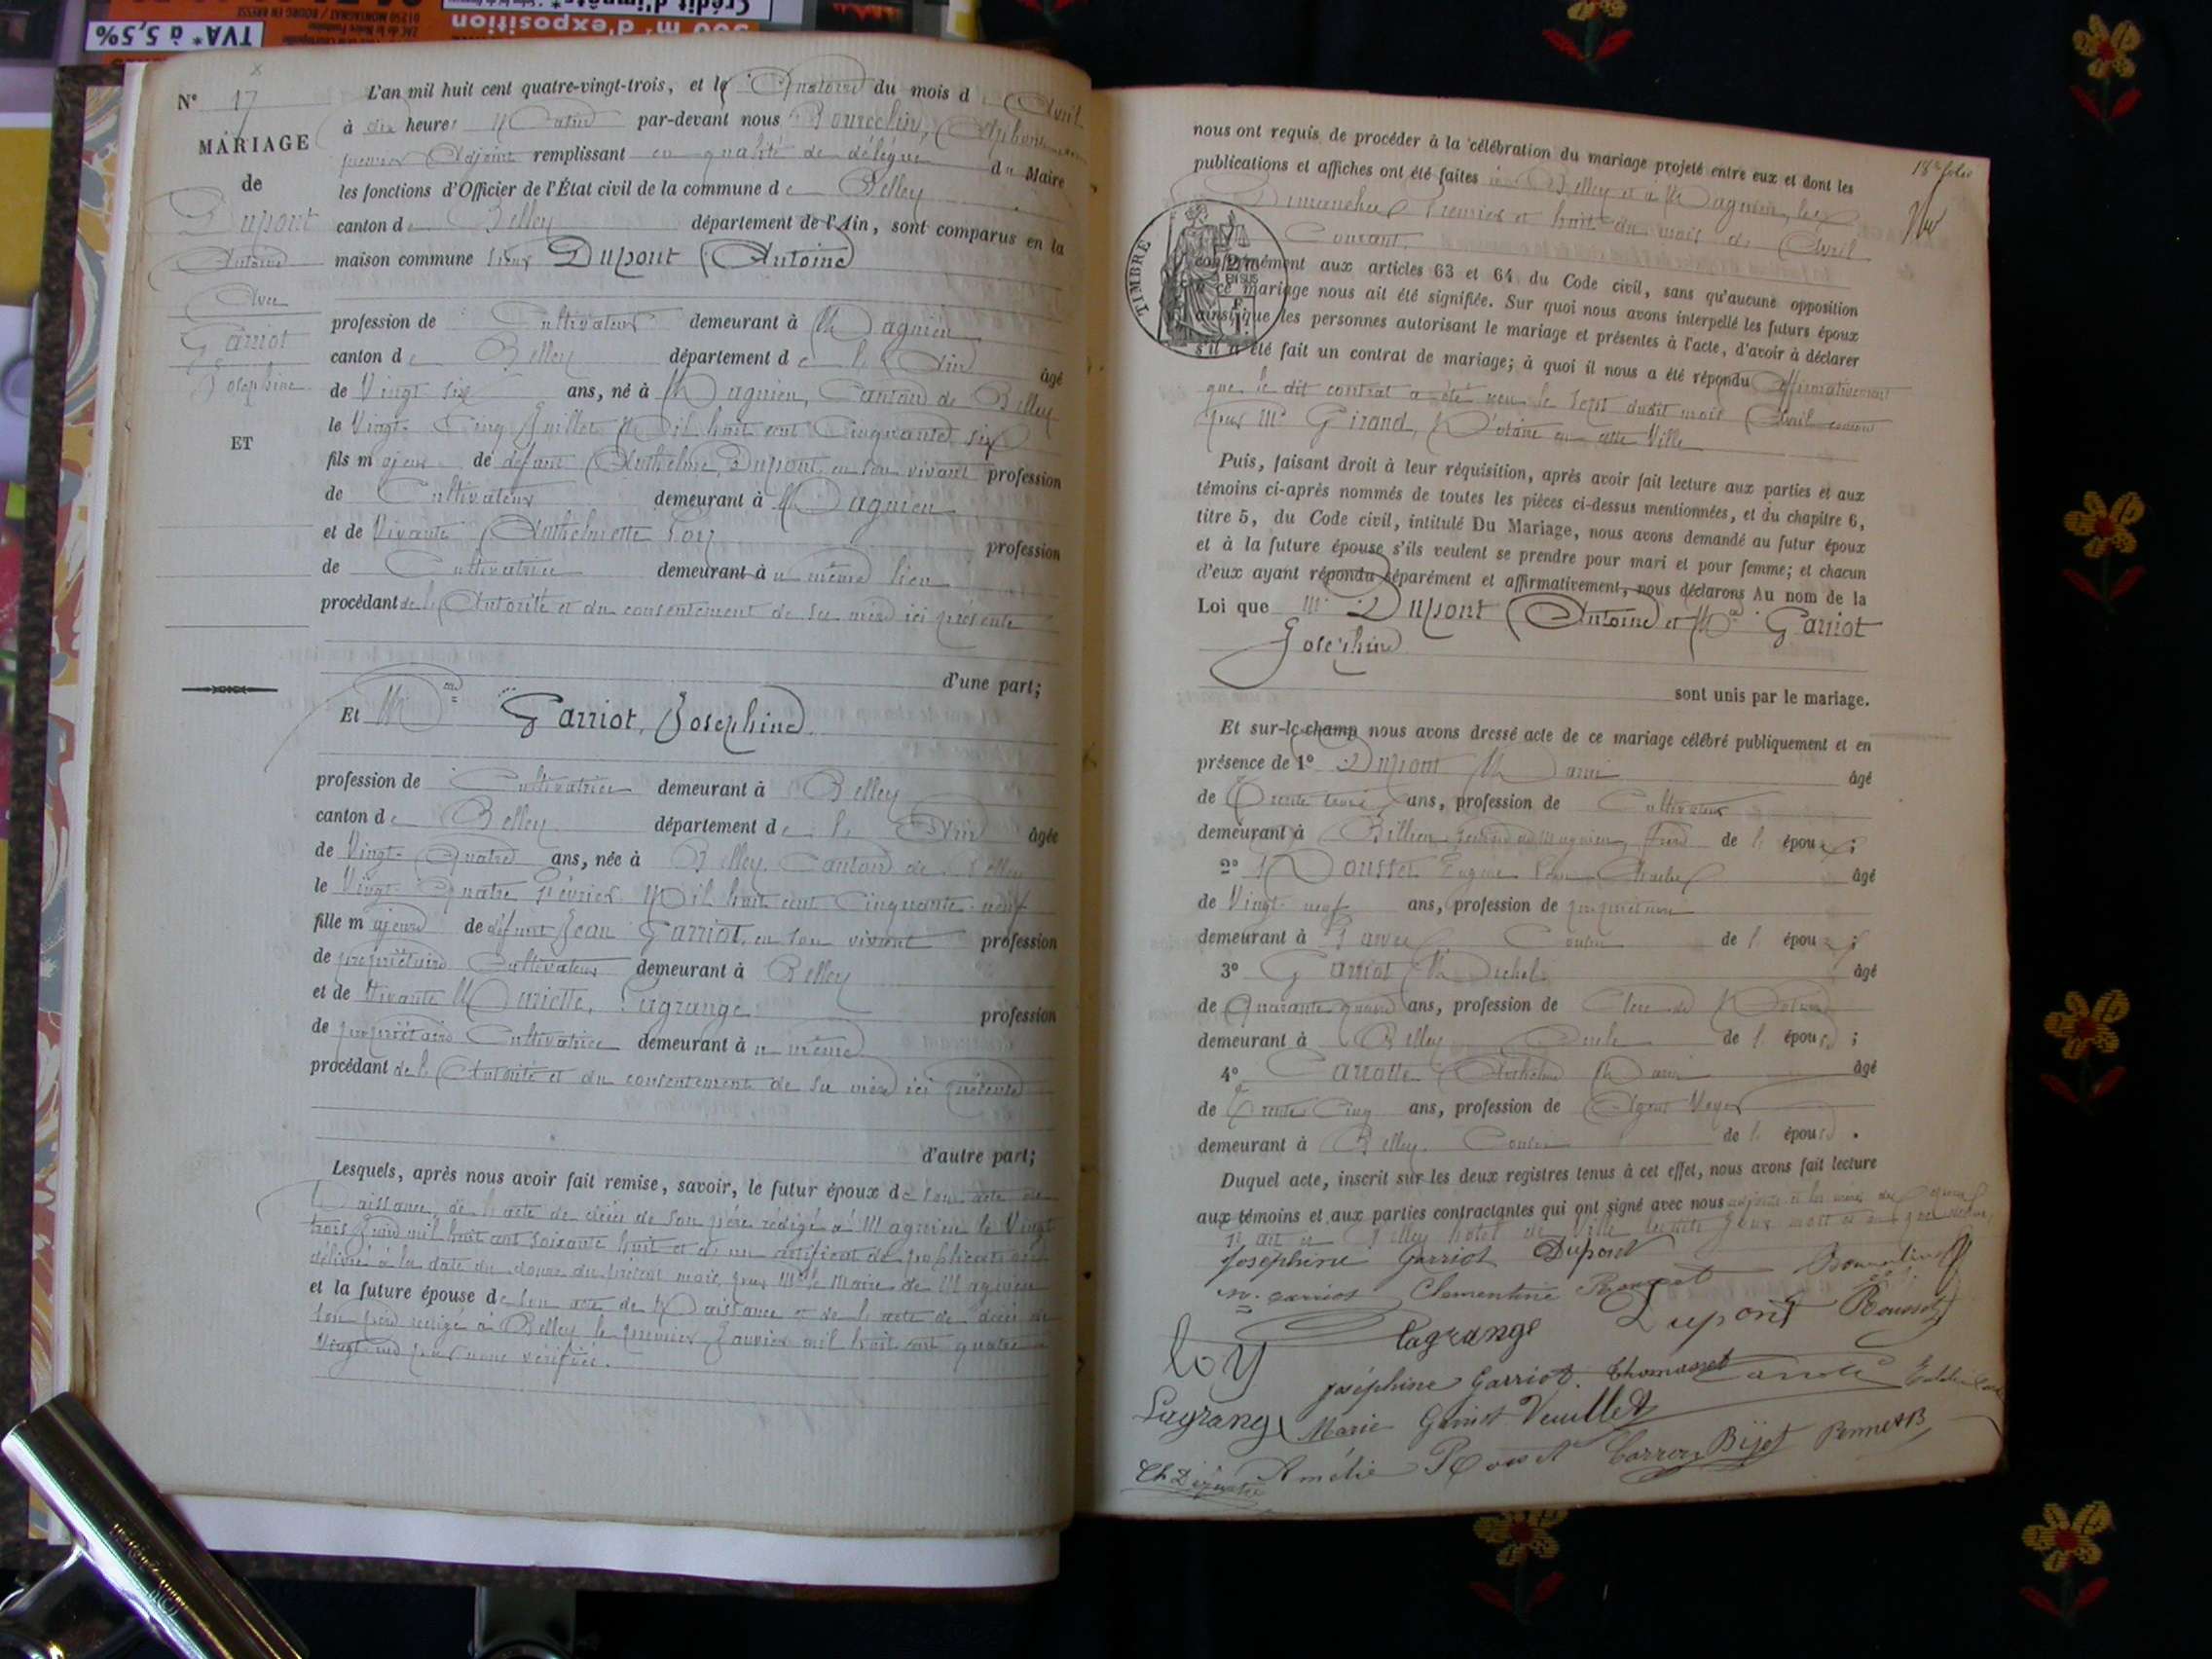 TVA* à 5,5%
01250 MONTAGNAT / BOURG EN BRESSE
500 m² d'exposition
Crédit d'impôts*
N° 17
MARIAGE
de
Dupont
Antoine
Avec
Garriot
Josephine
ET
L'an mil huit cent quatre-vingt-trois, et le Quatorze du mois d Avril
à dix heures Matin par-devant nous
premier Adjoint remplissant en qualité de délégué du Maire
les fonctions d'Officier de l'État civil de la commune de Belley
canton de Belley département de l'Ain, sont comparus en la
maison commune sieur Dupont Antoine
profession de Cultivateur demeurant à Magnieu
canton de Belley département de l'Ain âgé
de Vingt six ans, né à Magnieu, Canton de Belley
le Vingt-Cinq Juillet Mil huit cent Cinquante six
fils majeur de défunt Anthelme Dupont en son vivant profession
de Cultivateur demeurant à Magnieu
et de Vivante Anthelmette Loy profession
de Cultivatrice demeurant à u même lieu
procédant de l'Autorité et du consentement de sa mère ici présente
d'une part;
Et Mme Garriot, Josephine
profession de Cultivatrice demeurant à Belley
canton de Belley département de l'Ain âgée
de Vingt-Quatre ans, née à Belley, Canton de Belley
le Vingt-Quatre Février Mil huit cent Cinquante-neuf
fille majeure de défunt Jean Garriot, en son vivant profession
de propriétaire Cultivateur demeurant à Belley
et de Vivante Mariette, Lagrange profession
de propriétaire Cultivatrice demeurant à u même
procédant de l'Autorité et du consentement de sa mère ici présente
d'autre part;
Lesquels, après nous avoir fait remise, savoir, le futur époux de son acte de
Naissance, de l'acte de décès de son père rédigé à Magnieu le Vingt
trois Juin mil huit cent soixante huit et d'un certificat de publications
délivré à la date du douze du présent mois, par Mr le Maire de Magnieu
et la future épouse de son acte de Naissance et de l'acte de décès de
son père rédigé à Belley le premier Janvier mil huit cent quatre
Vingt-un par nous vérifiés.
18e folio
nous ont requis de procéder à la célébration du mariage projeté entre eux et dont les
publications et affiches ont été faites à Belley et à Magnieu, les
Dimanches Premier et huit du mois d' Avril
Courant.
TIMBRE
conformément aux articles 63 et 64 du Code civil, sans qu'aucune opposition
à ce mariage nous ait été signifiée. Sur quoi nous avons interpellé les futurs époux
ainsi que les personnes autorisant le mariage et présentes à l'acte, d'avoir à déclarer
s'il a été fait un contrat de mariage; à quoi il nous a été répondu Affirmativement
que le dit contrat a été reçu le sept dudit mois Avril courant
par Me Girand, Notaire en cette Ville
Puis, faisant droit à leur réquisition, après avoir fait lecture aux parties et aux
témoins ci-après nommés de toutes les pièces ci-dessus mentionnées, et du chapitre 6,
titre 5, du Code civil, intitulé Du Mariage, nous avons demandé au futur époux
et à la future épouse s'ils veulent se prendre pour mari et pour femme; et chacun
d'eux ayant répondu séparément et affirmativement, nous déclarons Au nom de la
Loi que Mr Dupont Antoine et Mme Garriot
Josephine
sont unis par le mariage.
Et sur-le-champ nous avons dressé acte de ce mariage célébré publiquement et en
présence de 1° Dupont Marie âgé
de Trente trois ans, profession de Cultivateur
demeurant à Billieu de l'époux;
2° Rousset Eugène Charles âgé
de Vingt neuf ans, profession de propriétaire
demeurant à Parves Cousin de l'époux;
3° Garriot Michel âgé
de Quarante quatre ans, profession de Clerc de Notaire
demeurant à Belley Oncle de l'épouse;
4° Carrotte Anthelme Marie âgé
de Trente Cinq ans, profession de Agent Voyer
demeurant à Belley Cousin de l'épouse.
Duquel acte, inscrit sur les deux registres tenus à cet effet, nous avons fait lecture
aux témoins et aux parties contractantes qui ont signé avec nous
Josephine Garriot Dupont
M. Garriot Clementine Rousset
Lagrange Dupont Rousset
Loy
Joséphine Garriot Thomasset
Lagrange Marie Veuillet
Amélie Bijot Pernet B